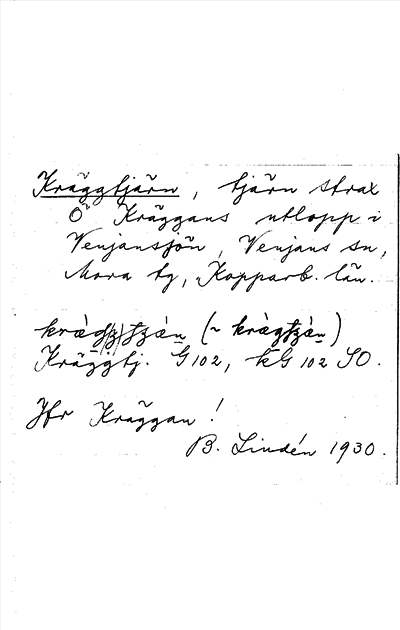 Kräggtjärn, tjärn strax
Ö Kräggans utlopp i
Venjansjön, Venjans sn,
Mora tg, Kopparb. län.
Kräggtj. G 102, kG 102 SO.
Jfr Kräggan!
B. Lindén 1930.